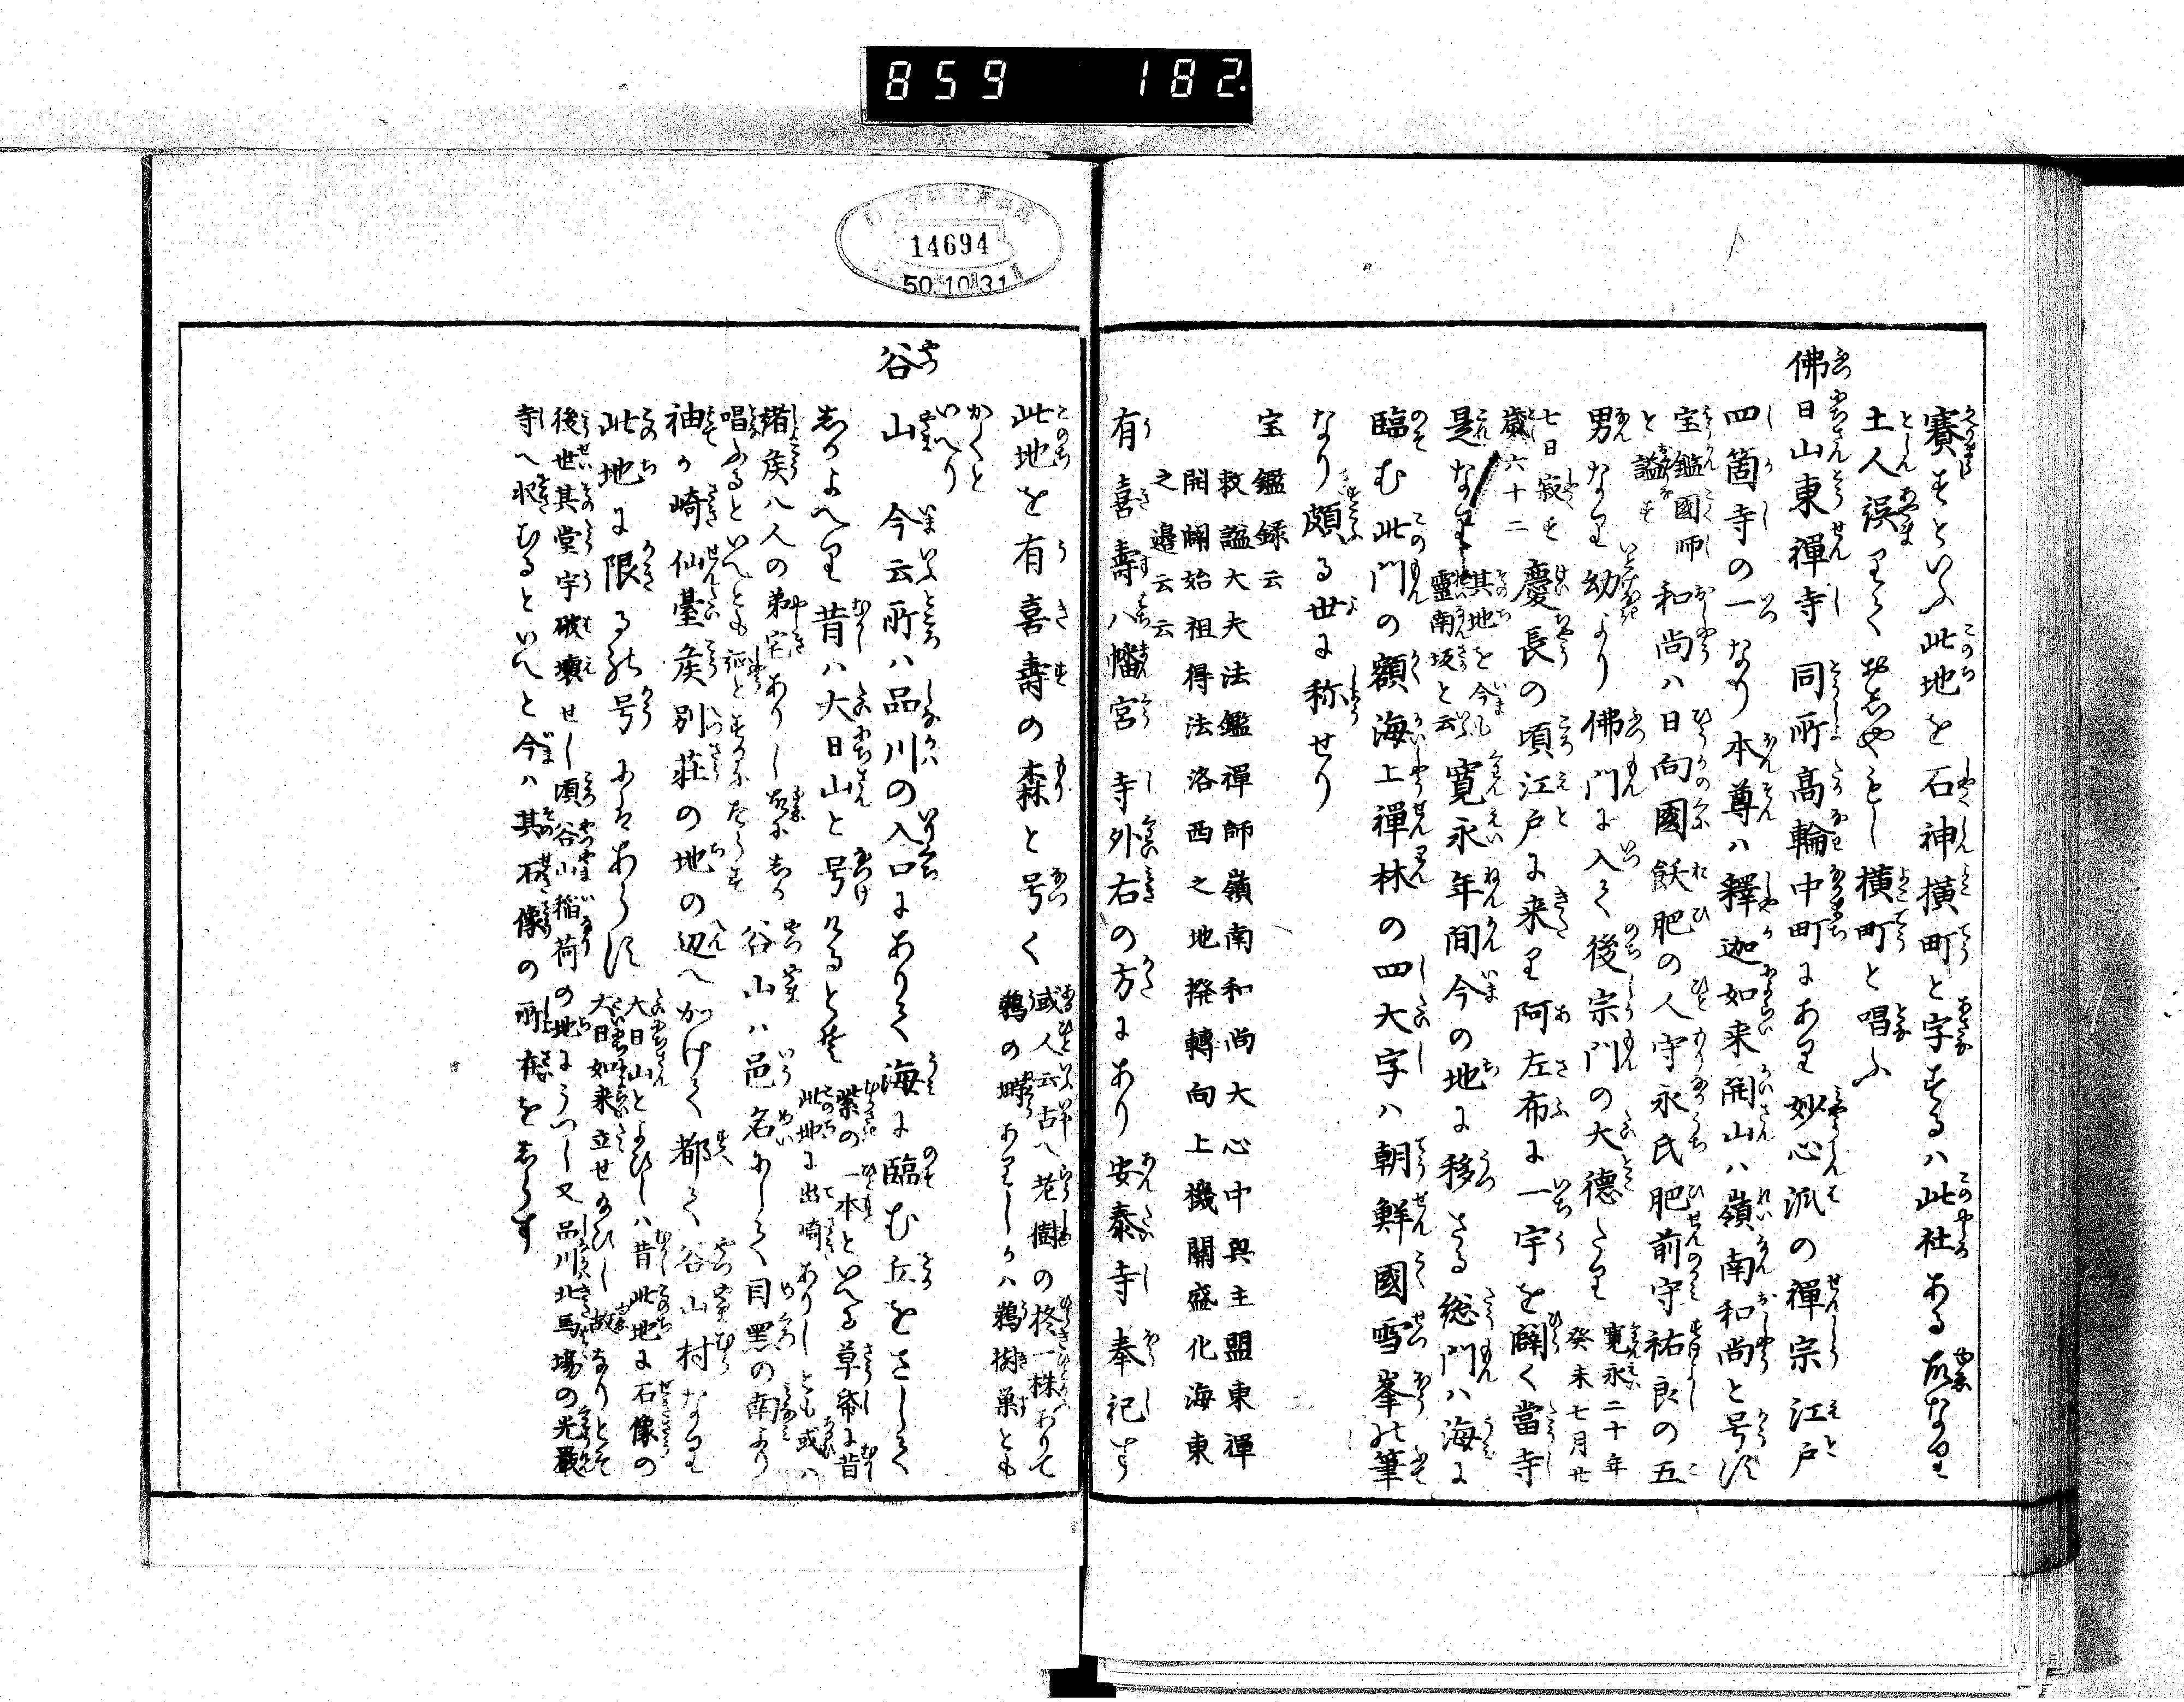 859 182.
賽すといふ此地を石神横町と字するハ此社ある故なり
土人誤りておしやもし横町と唱ふ
佛日山東禪寺 同所高輪中町にあり妙心派の禪宗江戸
四箇寺の一なり本尊ハ釋迦如来開山ハ嶺南和尚と号す
宝鑑國師と謚す 和尚ハ日向國飫肥の人守永氏肥前守祐良の五
男なり幼より佛門に入て後宗門の大德たり 寛永二十年癸未七月廿
七日寂す歳六十二 慶長の頃江戸に来り阿左布に一宇を闢く當寺
是なり 其地を今も靈南坂と云 寛永年間今の地に移さる総門ハ海に
臨む此門の額海上禪林の四大字ハ朝鮮國雪峯の筆
なり頗る世に称せり
宝鑑録云
救謚大夫法鑑禪師嶺南和尚大心中興主盟東禪
開闢始祖得法洛西之地撥轉向上機關盛化海東
之邉云云
有喜壽八幡宮 寺外右の方にあり安泰寺奉祀す
此地を有喜壽の森と号く 或人云古へ老樹の柊一株ありて
鵜の塒ありしかハ鵜樹巣とも
かくと
いへり
谷山 今云所ハ品川の入口にありて海に臨む丘をさして
しかよへり昔ハ大日山と号けるとぞ 紫の一本といへる草帋に昔
此地に出崎ありしとも或ハ
諸矦八人の弟宅ありし故にしか
唱ふるといへとも証とするにたらす 谷山ハ邑名にして目黒の南より
袖か崎仙臺矦別荘の地の辺へかけて都て谷山村なり
此地に限る号にはあらす 大日山とよひしハ昔此地に石像の
大日如来立せ給ひし故なりとそ
後世其堂宇破壊せし頃谷山稲荷の地にうつし又品川北馬場の光嚴
寺へ収むるといへと今ハ其石像の所在をしらす
14694
50.10.31